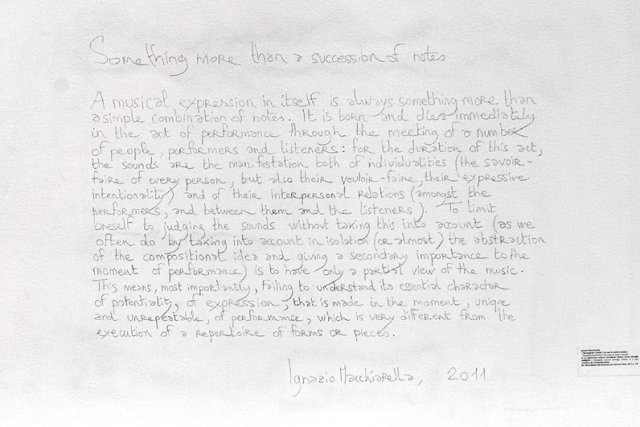 Something more than a succession of notes
A musical expression in itself is always something more than
a simple combination of notes. It is born and dies immediately
in the act of performance through the meeting of a number
of people, performers and listeners: for the duration of this act,
the sounds are the manifestation both of individualities (the savoir-
faire of every person, but also their vouloir-faire, their expressive
intentionality) and of their interpersonal relations (amongst the
performers, and between them and the listeners). To limit
oneself to judging the sounds without taking this into account (as we
often do, by taking into account in isolation (or almost) the abstraction
of the compositional idea and giving a secondary importance to the
moment of performance) is to have only a partial view of the music.
This means, most importantly, failing to understand its essential character
of potentiality, of expression, that is made in the moment, unique
and unrepeatable, of performance, which is very different from the
execution of a repertoire of forms or pieces.
Ignazio Macchiarella, 2011